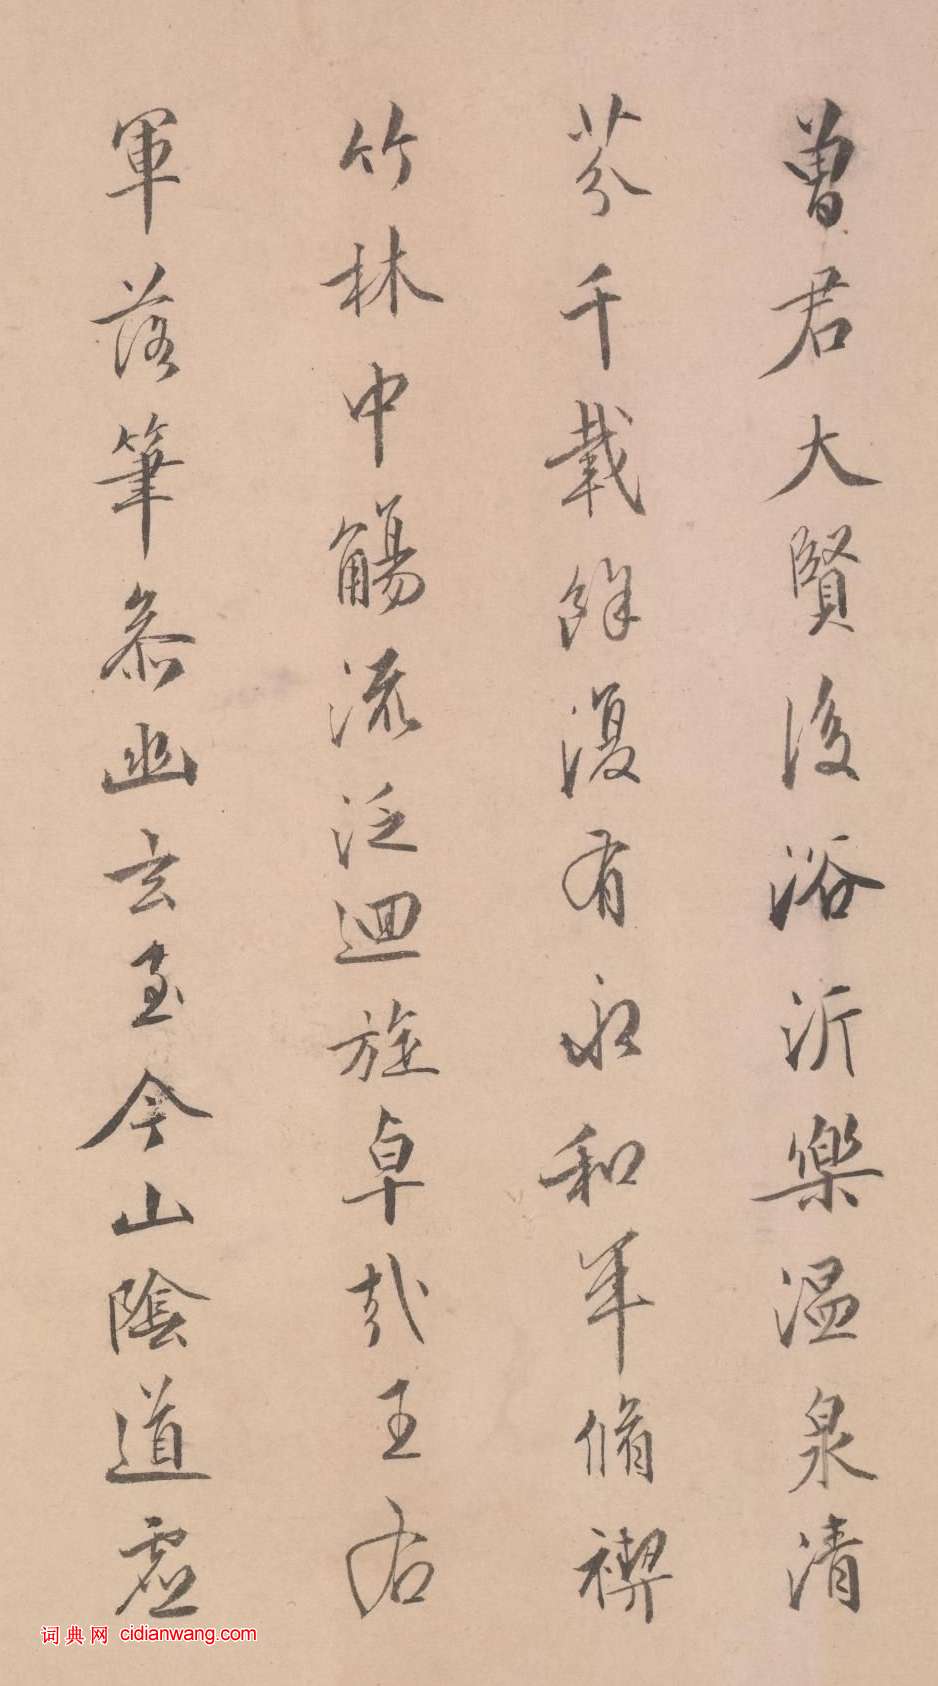 曾君大賢後浴沂樂溫泉清
芬千載餘復有永和年脩禊
竹林中觴流泛迴旋卓哉王右
軍落筆參幽玄至今山陰道虛
词典网 cidianwang.com